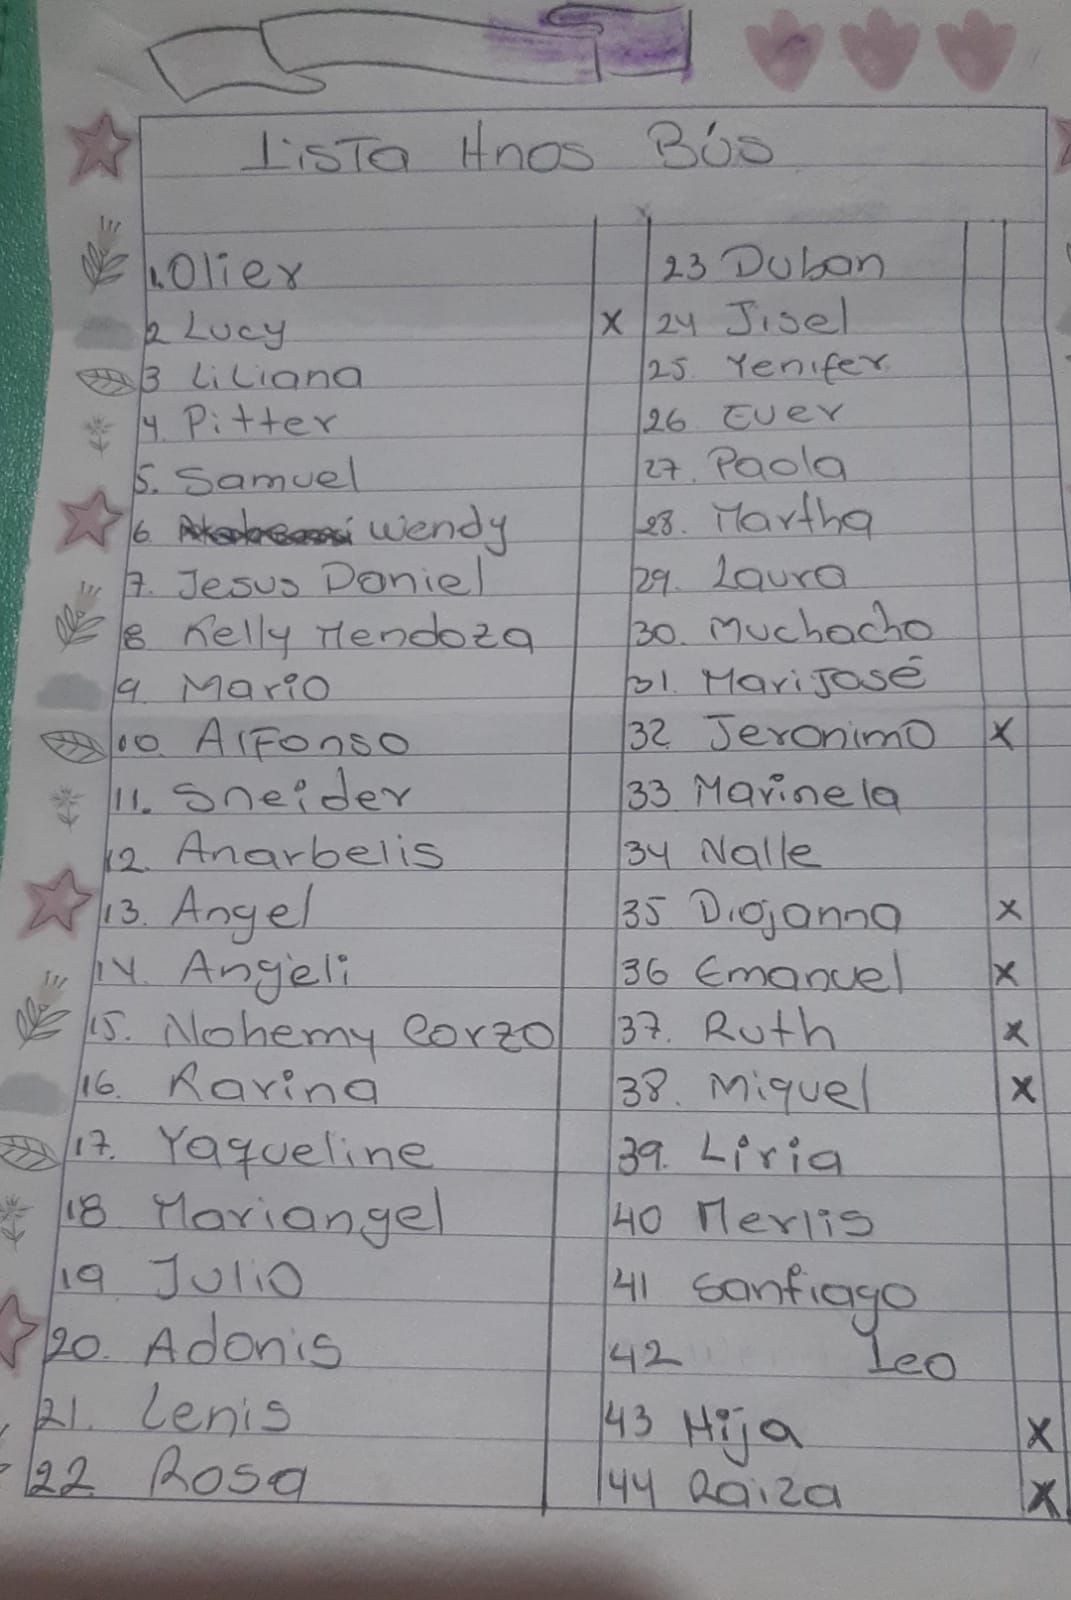 Lista Hnos Bús
1. Olier
2 Lucy X
3 Liliana
4. Pitter
5. Samuel
6. Wendy
7. Jesus Daniel
8 Kelly Mendoza
9. Mario
10. Alfonso
11. Sneider
12. Anarbelis
13. Angel
14. Angeli
15. Nohemy Corzo
16. Karina
17. Yaqueline
18 Mariangel
19 Julio
20. Adonis
21. Lenis
22. Rosa
23 Duban
24 Jisel
25. Yenifer
26. Ever
27. Paola
28. Martha
29. Laura
30. Muchacho
31. Marijosé
32 Jeronimo X
33 Marinela
34 Nalle
35 Diojanna X
36 Emanuel X
37. Ruth X
38. Miguel X
39. Liria
40 Merlis
41 Santiago
42 Leo
43 Hija X
44 Raiza X